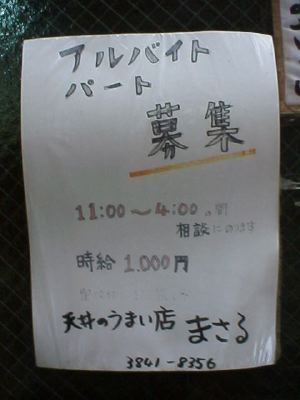 アルバイト
パート
募集
11:00～4:00の間
相談にのります
時給 1.000円
天丼のうまい店 まさる
3841-8356